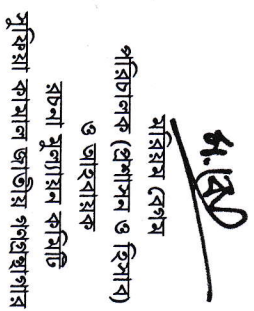 মরিয়ম বেগম
পরিচালক (প্রশাসন ও হিসাব)
ও আহবায়ক
রচনা মূল্যায়ন কমিটি
সুফিয়া কামাল জাতীয় গণগ্রন্থাগার